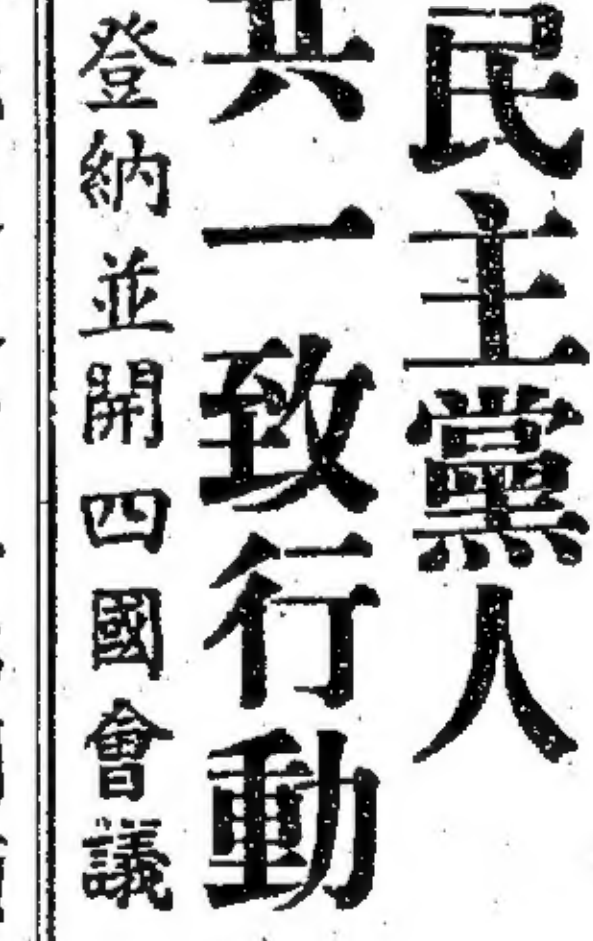 民主黨人
共一致行動
登納並開四國會議